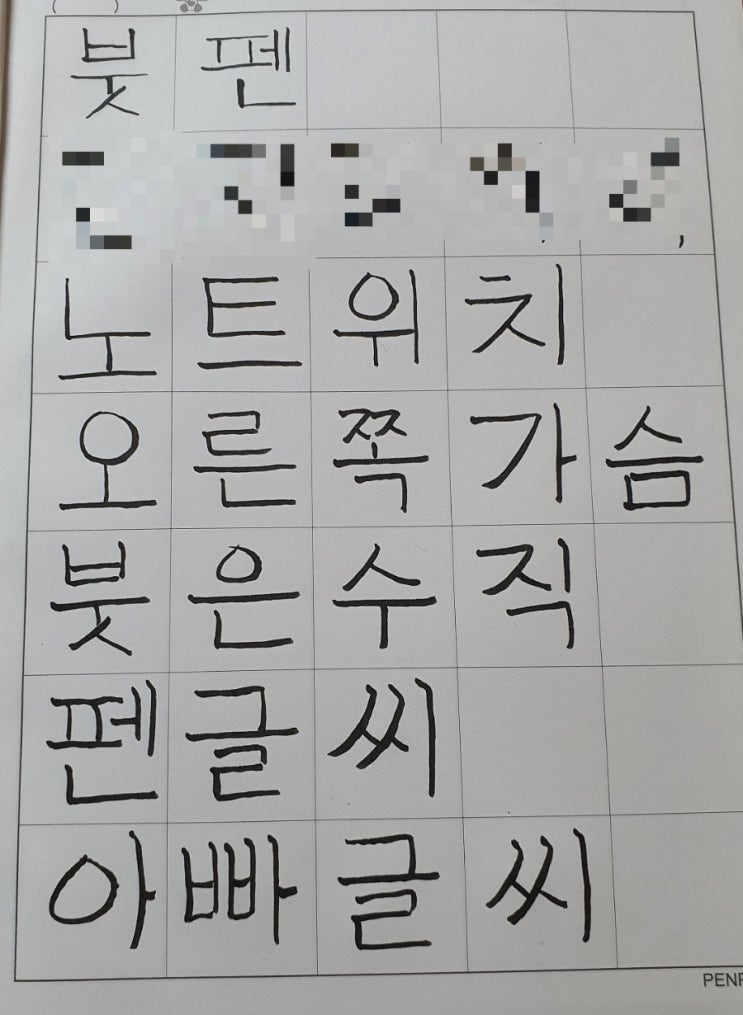 붓펜
노트위치
오른쪽가슴
붓은수직
펜글씨
아빠글씨